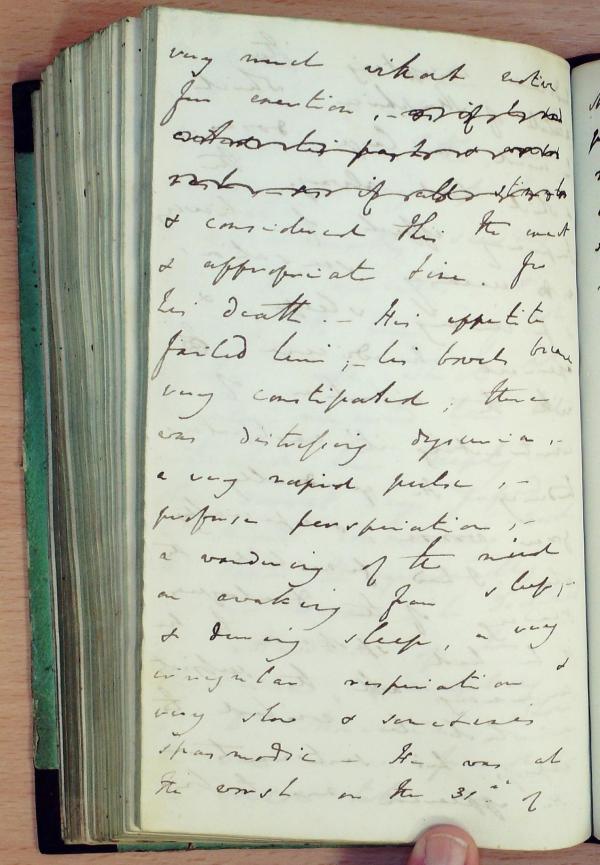 very much without entire
for exertion, -
& considered this the most
& appropriate time. for
his death. - His appetite
failed him, - his bowels became
very constipated; there
was distressing dyspnœa, -
a very rapid pulse, -
profuse perspiration, -
a wandering of the mind
on awaking from sleep, -
& during sleep, a very
irregular respiration &
very slow & sometimes
spasmodic - He was at
the worst on the 31st of